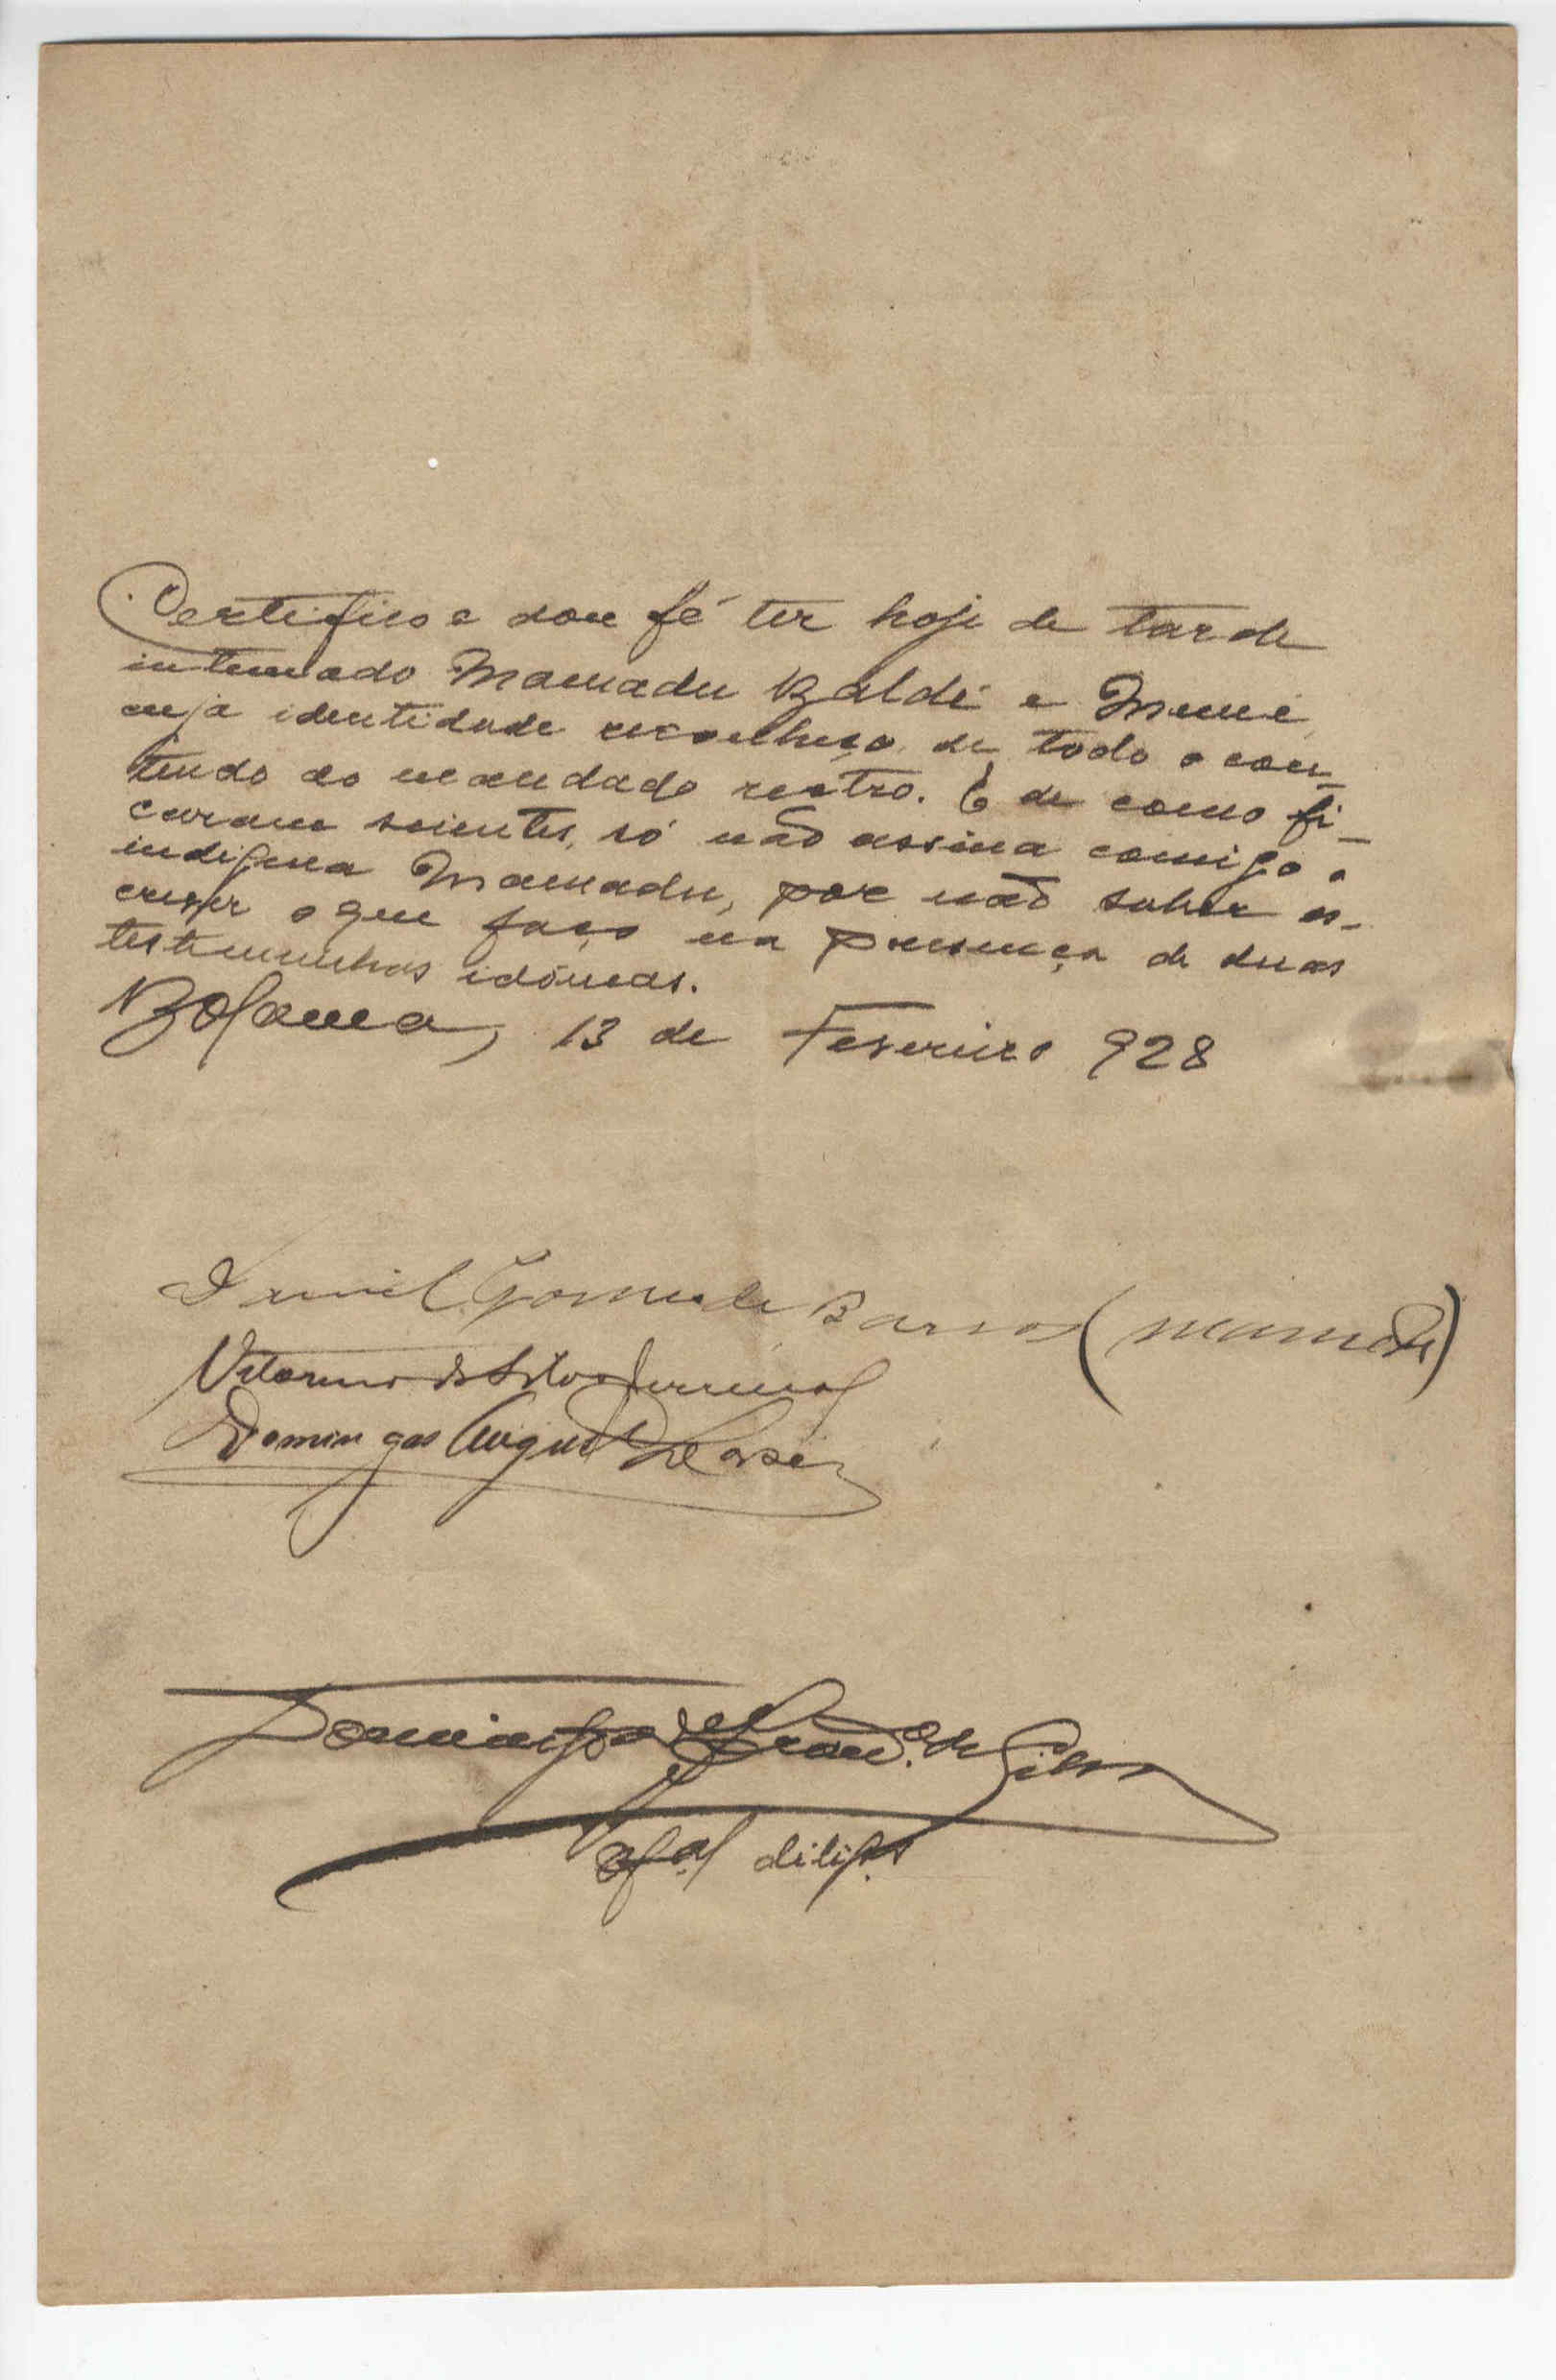 Certifico e dou fé ter hoje de tarde
intimado Mamadu Baldé e Mumé
cuja identidade reconheço, de todo o con-
teudo do mandado retro. E de como fi-
caram scientes, só não assina comigo o
indigena Mamadu, por não saber es-
crever o que faço na presença de duas
testemunhas idóneas.
Bolama, 13 de Fevereiro 928
Daniel Gomes de Barros (mamede)
Vitorino da Silva
Domingos August
Domingos da Silva
of.al dilig.s